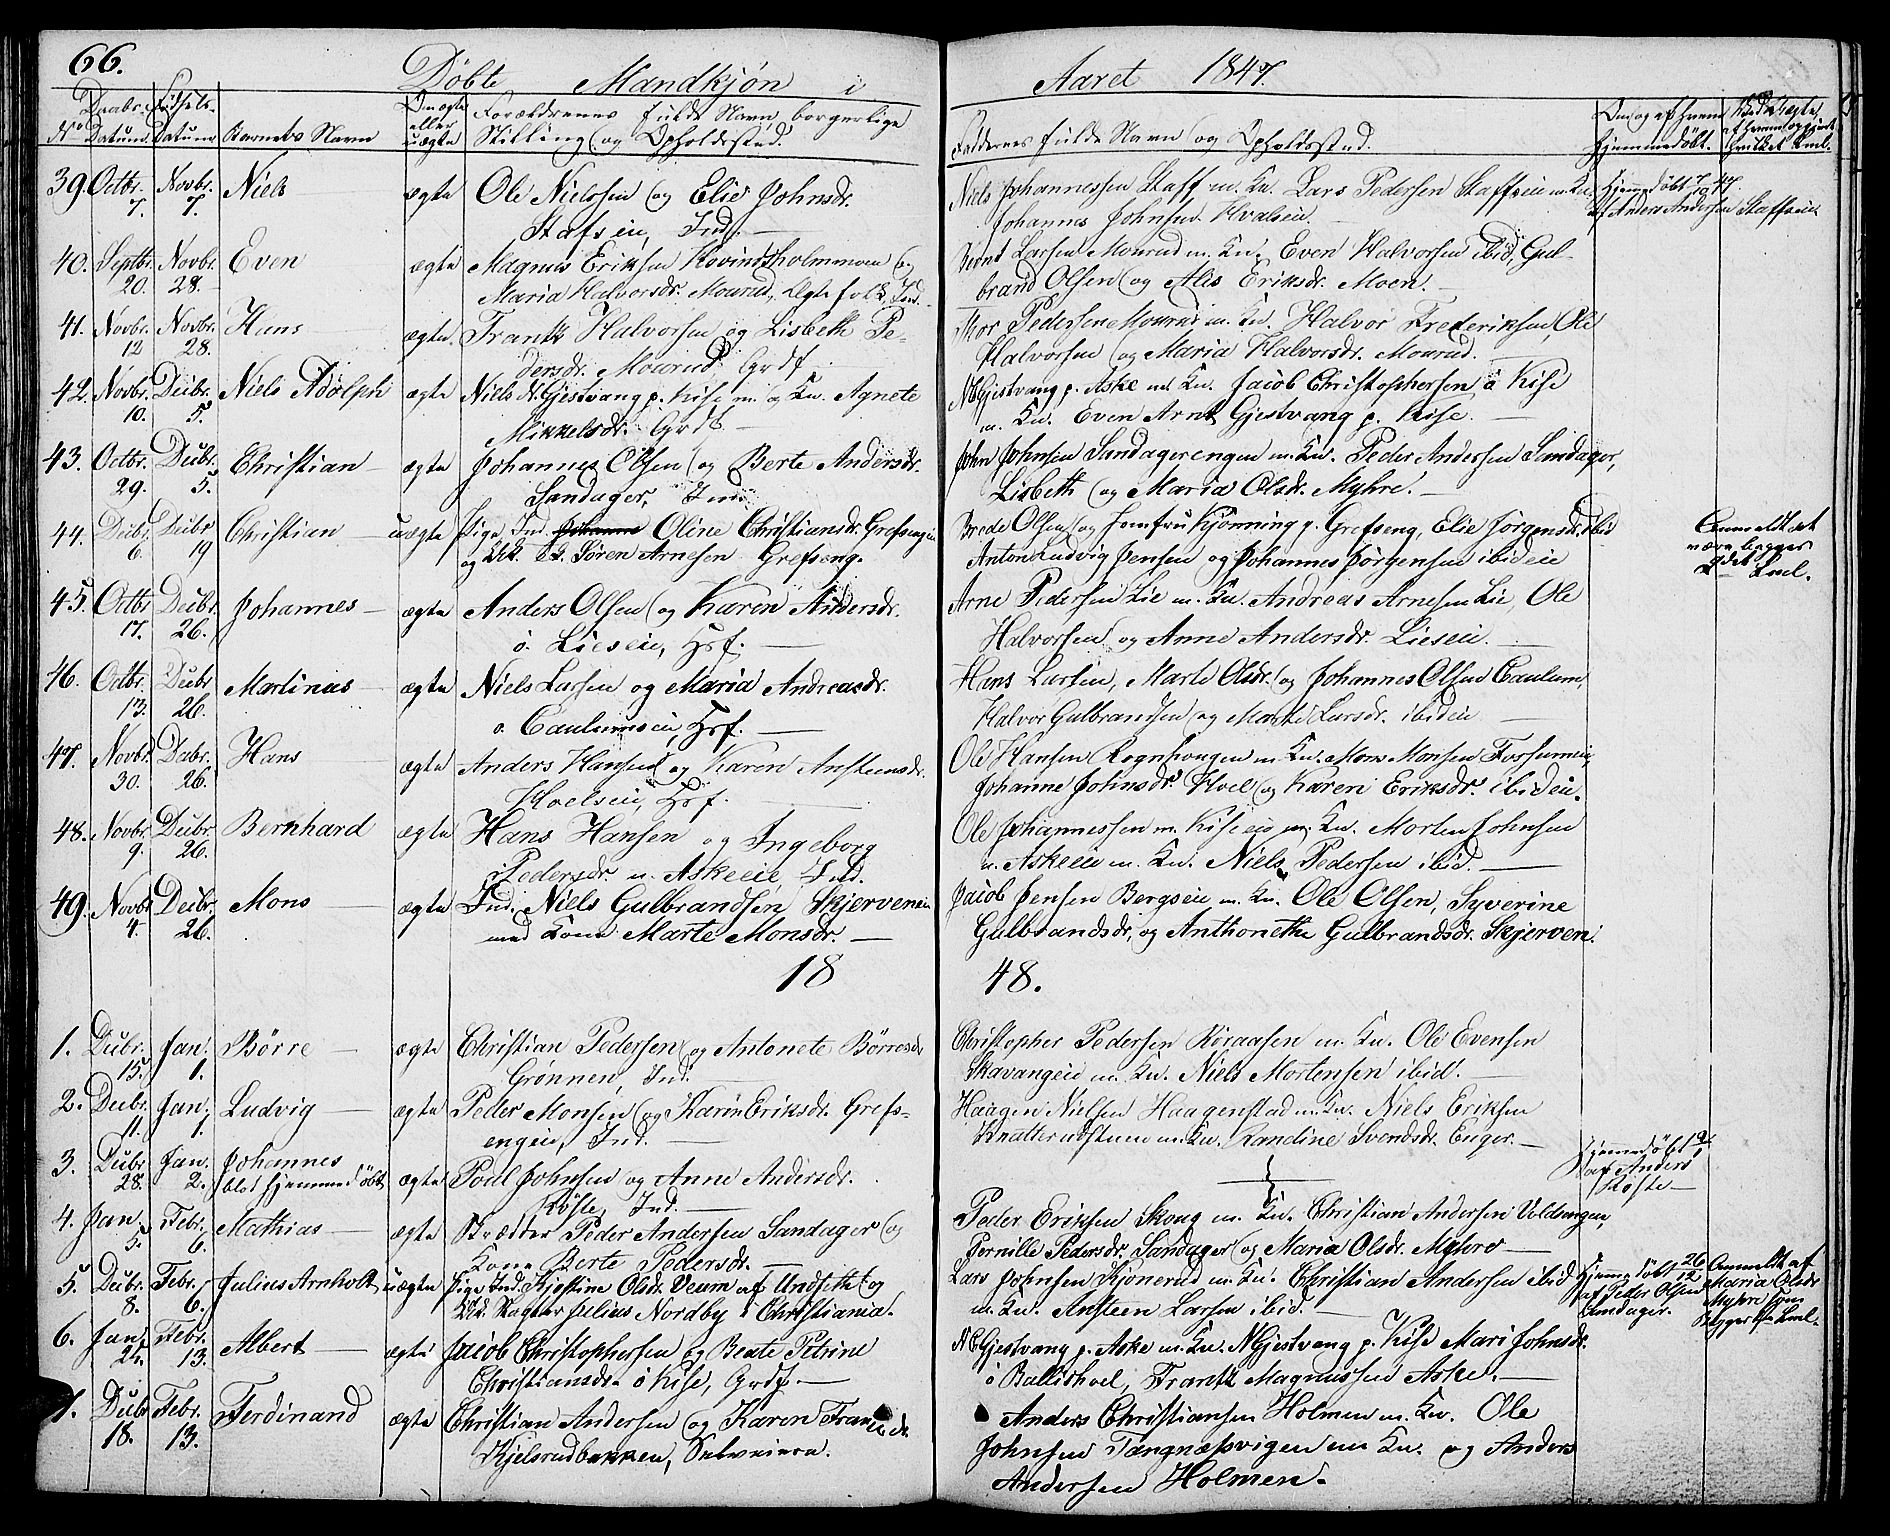 66.
Döbte Mandkjøn i
Aaret 1847.
No Daabs Datum. Fødsels Datum Barnets Navn Om ægte eller uægte Forældrenes fulde Navn, borgerlige Stilling og Opholdssted.
Faddernes fulde Navn og Opholdssted. Om og af hvem hjemmedöbt.
39. Octbr. 7. Novbr. 7. Niels ægte Ole Nielssen og Elie Johnsdr.
Stafseie, Ind. —
Niels Johannessen Staff m. Kv. Lars Pedersen Staffseie m. Kv.
Johannes Johnsen Hvalseie. —
Hjemmedöbt 7/10 47. af Anders Andersen Staffseie
40. Septbr. 20. Novbr. 28. Even ægte Magnus Eriksen Hovindsholmmoen og
Maria Halvorsdr. Mourud, Ægtefolk, Ind.
Bernt Larsen Mourud m. Kv. Even Halvorsen ibid, Gul-
brand Olsen og Alis Eriksdr. Moen. —
41. Novbr. 12 Novbr. 28. Hans ægte. Frantz Halvorsen og Lisbeth Pe-
dersdr. Mourud. Grdf.
Thor Pedersen Mourud m. Kv. Halvor Frederiksen, Ole
Halvorsen og Maria Halvorsdr. Mourud. —
42. Novbr. 10. Decbr. 5. Niels Adolph ægte Niels N. Gjestvang p. Kise m. Kv. Agnete
Mikkelsdr. Grdb. —
N Gjestvang p. Aske m. Kv. Jacob Christophersen ö Kise
m. Kv. Even Arnt Gjestvang p. Kise. —
43. Octbr. 29. Decbr. 5. Christian — ægte Johannes Olsen og Berte Andersdr.
Sandager, Ind.
John Johnsen Sandagerengen m. Kv. Peder Andersen Sandager,
Lisbeth og Maria Olsdr. Myhre. —
44. Decbr. 6. Decbr 19 Christian — uægte Pige Ind. Oline Christiansdr. Grefsengeie
og Ulk. Sören Arnesen Grefseng.
Brede Olsen og Jomfru Kjönning p. Grefseng, Elie Jörgensdr. ibid
Anton Ludvig Jensen og Johannes Jörgensen ibideie
Anmeldt det være begges
45. Octbr 17. Decbr 26. Johannes — ægte Anders Olsen og Karen Andersdr.
ö. Lieseie, Hsf. —
Arne Pedersen Lie m. Kv. Andreas Arnesen Lie, Ole
Halvorsen og Anne Andersdr. Lieseie. —
46. Octbr. 13. Decbr 26. Martinus — ægte Niels Larsen og Maria Andreasdr.
ö. Caulumseie, Hsf. —
Hans Larsen, Marte Olsdr. og Johannes Olsen Caulum,
Halvor Gulbrandsen og Marte Larsdr. ibideie —
47. Novbr. 30. Decbr. 26. Hans — ægte Anders Hansen og Karen Ansteensdr.
Hoelseie, Hsf. —
Ole Hansen Rognhougen m. Kv. Mons Monsen Fossumeie,
Johanne Johnsdr. Hoel og Karen Eriksdr. ibideie.
48. Novbr. 9. Decbr. 26. Bernhard ægte Hans Hansen og Ingeborg
Pedersdr. n. Askeeie Ind.
Ole Johannessen m. Kiseeie m. Kv. Morten Johnsen
n. Askeeie m. Kv. Niels Pedersen ibid. —
49. Novbr 4. Decbr. 26. Mons — ægte Ind. Niels Gulbrandsen Skjerveneie
med Kone Marte Monsdr. —
Jacob Jensen Bergseie m. Kv. Ole Olsen, Syverine
Gulbrandsdr, og Anthonethe Gulbrandsdr. Skjerven.
18 48.
1. Decbr. 15. Jan. 1. Börre — ægte Christian Pedersen og Antonete Börresdr
Grønnen, Ind. —
Christopher Pedersen Koraasen m. Kv. Ole Evensen
Skavangeie m. Kv. Niels Mortensen ibid. —
2. Decbr. 11. Jan. 1. Ludvig — ægte Peder Monsen og Karen Eriksdr. Grefs-
engeie, Ind. —
Haagen Nielsen Haagenstad m. Kv. Niels Eriksen
Knatterudstuen m. Kv. Randine Svendsdr. Enger. —
3. Decbr. 28. Jan. 2. Johannes blot hjemmedöbt ægte Poul Johnsen og Anne Andersdr.
Röste, Ind. —
Hjemmedöbt af Anders Röste —
4. Jan 5. Febr. 6. Mathias — ægte Skrædder Peder Andersen Sandager og
Kone Berte Pedersdr. —
Peder Eriksen Skoug m. Kv. Christian Andersen Voldsengen,
Pernille Pedersdr. Sandager og Maria Olsdr. Myhre —
5. Decbr. 8. Febr. 6. Julius Arnholt uægte Pige Ind. Kjestine Olsdr. Veum af Undseth og
Ulk. Julius Nordby i Christiania.
Lars Johnsen Kjönerud m. Kv. Christian Andersen ibid
m. Kv. Ansteen Larsen ibid. —
Hjemmedöbt 26/12 af Peder Olsen Sandager.
Anmeldt af Maria Olsdr Myhre som
6. Jan. 24. Febr. 13. Albert — ægte Jacob Christophersen og Beate Petrine
Christiansdr. ö Kise, Grdf. —
N Gjestvang p. Aske m. Kv. N Gjestvang p. Kise Mari Johnsdr.
ö Ballishoel, Frantz Magnussen Aske. —
7. Decbr 18. Febr. 13. Ferdinand ægte Christian Andersen og Karen Fransdr.
Kjelsrudbakken, Selveiere.
Anders Christiansen Holmen m. Kv. Ole
Johnsen Tangnæsvigen m Kv. og Anders
Andersen Holmen.